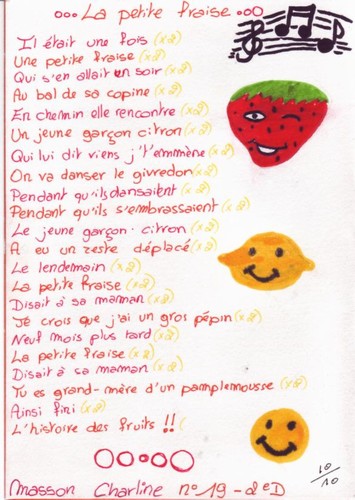 La petite fraise
Il était une fois (x2)
Une petite fraise (x2)
Qui s'en allait un soir (x2)
Au bal de sa copine (x2)
En chemin elle rencontre (x2)
Un jeune garçon citron (x2)
Qui lui dit viens j't'emmène (x2)
On va danser le givredon (x2)
Pendant qu'ils dansaient (x2)
Pendant qu'ils s'embrassaient (x2)
Le jeune garçon-citron (x2)
A eu un zeste déplacé (x2)
Le lendemain (x2)
La petite fraise (x2)
Disait à sa maman (x2)
Je crois que j'ai un gros pépin (x2)
Neuf mois plus tard (x2)
La petite fraise (x2)
Disait à sa maman (x2)
Tu es grand-mère d'un pamplemousse (x2)
Ainsi fini (x2)
L'histoire des fruits !! (
10/10
Masson Charline n°19 - 2eD